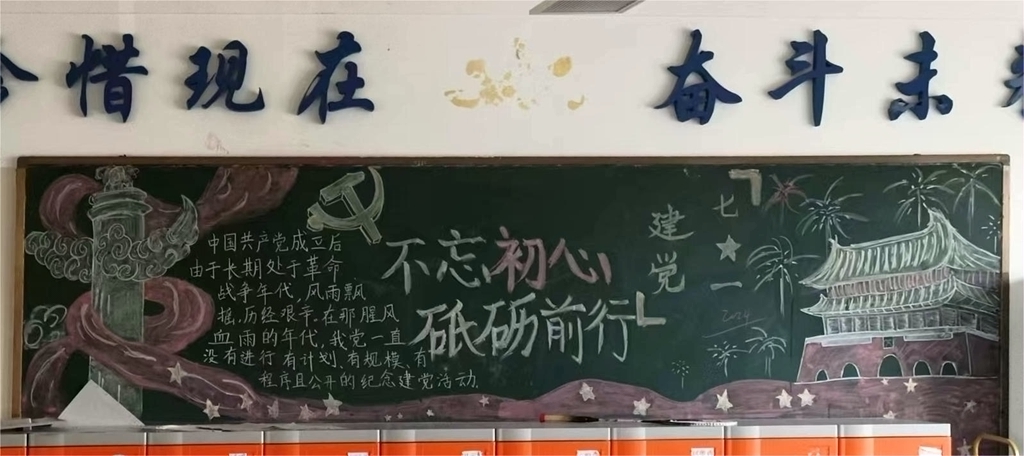 惜现在
奋斗未
中国共产党成立后
由于长期处于革命
战争年代,风雨飘
摇,历经艰辛.在那腥风
血雨的年代,我党一直
没有进行有计划.有规模.有
程序且公开的纪念建党活动.
不忘初心
砥砺前行
建党
七★一